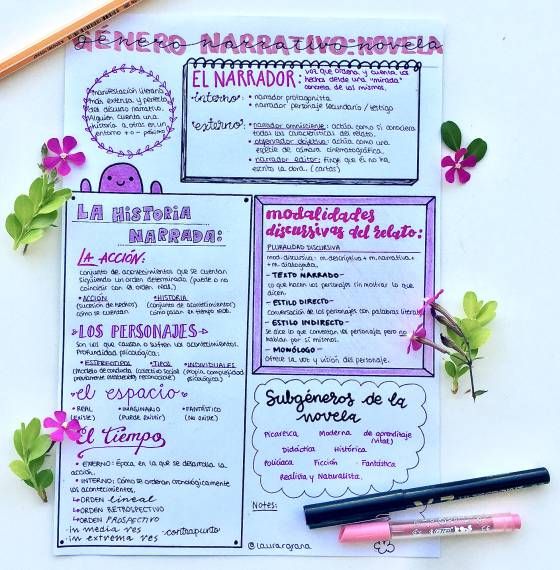 GÉNERO NARRATIVO: NOVELA
género narrativo: novela
Manifestación literaria
más extensa y perfecta
del discurso narrativo.
Alguien cuenta una
historia a otras en un
entorno +o- próximo
EL NARRADOR:
voz que ordena y cuenta los
hechos desde una "mirada"
concreta de los mismos.
interno:
• narrador protagonista
• narrador personaje secundario / testigo
externo:
• narrador omnisciente: actúa como si conociera
todas las características del relato.
• observador objetivo: actúa como una
especie de cámara cinematográfica.
• narrador editor: Finge que él no ha
escrito la obra. (cartas)
LA HISTORIA
NARRADA:
LA ACCIÓN:
conjunto de acontecimientos que se cuentan
siguiendo un orden determinado. (puede o no
coincidir con el orden real.)
• ACCIÓN
(sucesión de hechos)
cómo se cuentan.
• HISTORIA
(conjunto de acontecimientos)
cómo pasan en tiempo real.
LOS PERSONAJES
Son los que causan o sufren los acontecimientos.
Profundidad psicológica:
• ESTEREOTIPO
(Modelo de conducta,
previamente establecido)
• TIPOS
(colectivo social
reconocible)
• INDIVIDUALES
(propia complejidad
psicológica)
el espacio
• REAL
(existe)
• IMAGINARIO
(Puede existir)
• FANTÁSTICO
(No existe)
El tiempo
• EXTERNO: Época en la que se desarrolla la
acción.
• INTERNO: Cómo se ordenan cronológicamente
los acontecimientos.
↳ORDEN lineal
↳ORDEN RETROSPECTIVO
↳ORDEN PROSPECTIVO
·in media res
·contrapunto
·in extrema res
modalidades
discursivas del relato:
PLURALIDAD DISCURSIVA
mod. discursiva = m. descriptiva + m. narrativa +
+ m. dialogada.
- TEXTO NARRADO -
lo que hacen los personajes sin mostrar lo que
dicen.
- ESTILO DIRECTO -
conversación de los personajes con palabras literales
- ESTILO INDIRECTO -
se dice lo que conversan los personajes, pero no
hablan por sí mismos.
- MONÓLOGO -
Ofrece la voz y visión del personaje.
Subgéneros de la
novela
Picaresca Moderna de aprendizaje
(vital)
Didáctica Histórica
Policíaca Ficción Fantástica
Realista y Naturalista.
Notas:
@laurarojana